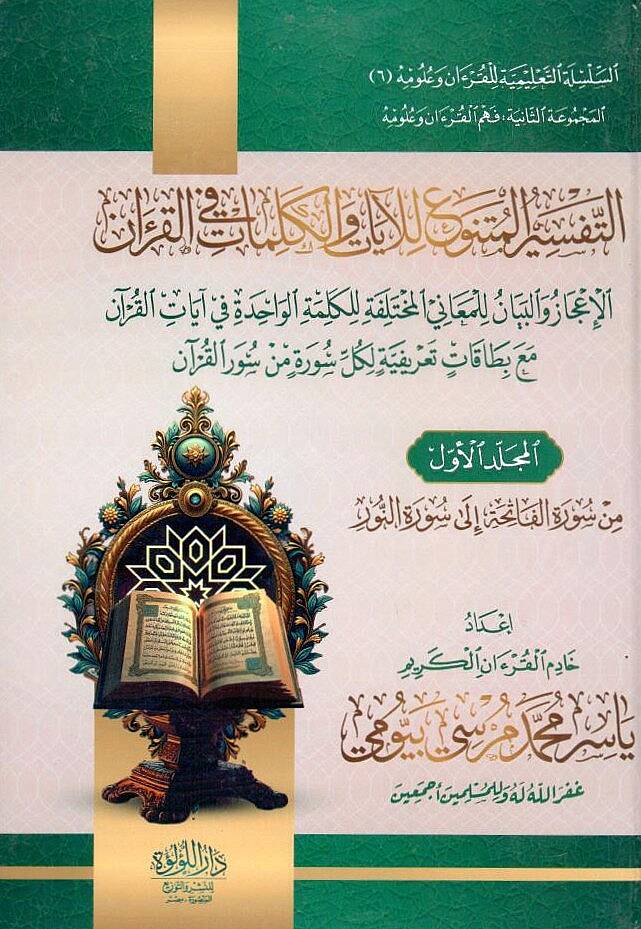 السلسلة التعليمية للقرءان وعلومه (٦)
المجموعة الثانية: فهم القرءان وعلومه
التفسير المتنوع للآيات والكلمات في القرءان
الإعجاز والبيان للمعاني المختلفة للكلمة الواحدة في آيات القرآن
مع بطاقات تعريفية لكل سورة من سور القرآن
المجلد الأول
من سورة الفاتحة إلى سورة النور
إعداد
خادم القرءان الكريم
ياسر محمد مرسي بيومي
غفر الله له وللمسلمين أجمعين
دار اللؤلؤة
للنشر والتوزيع
المنصورة - مصر